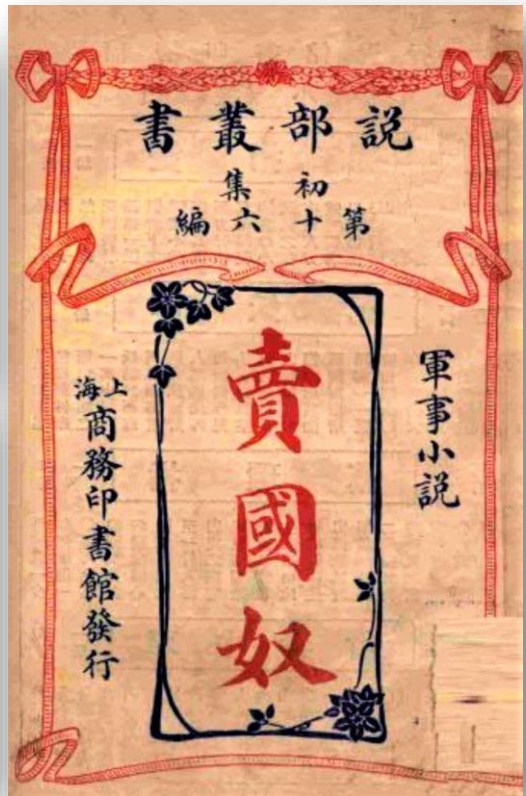 説部叢書
初集
第十六編
軍事小説
賣國奴
上海商務印書館發行